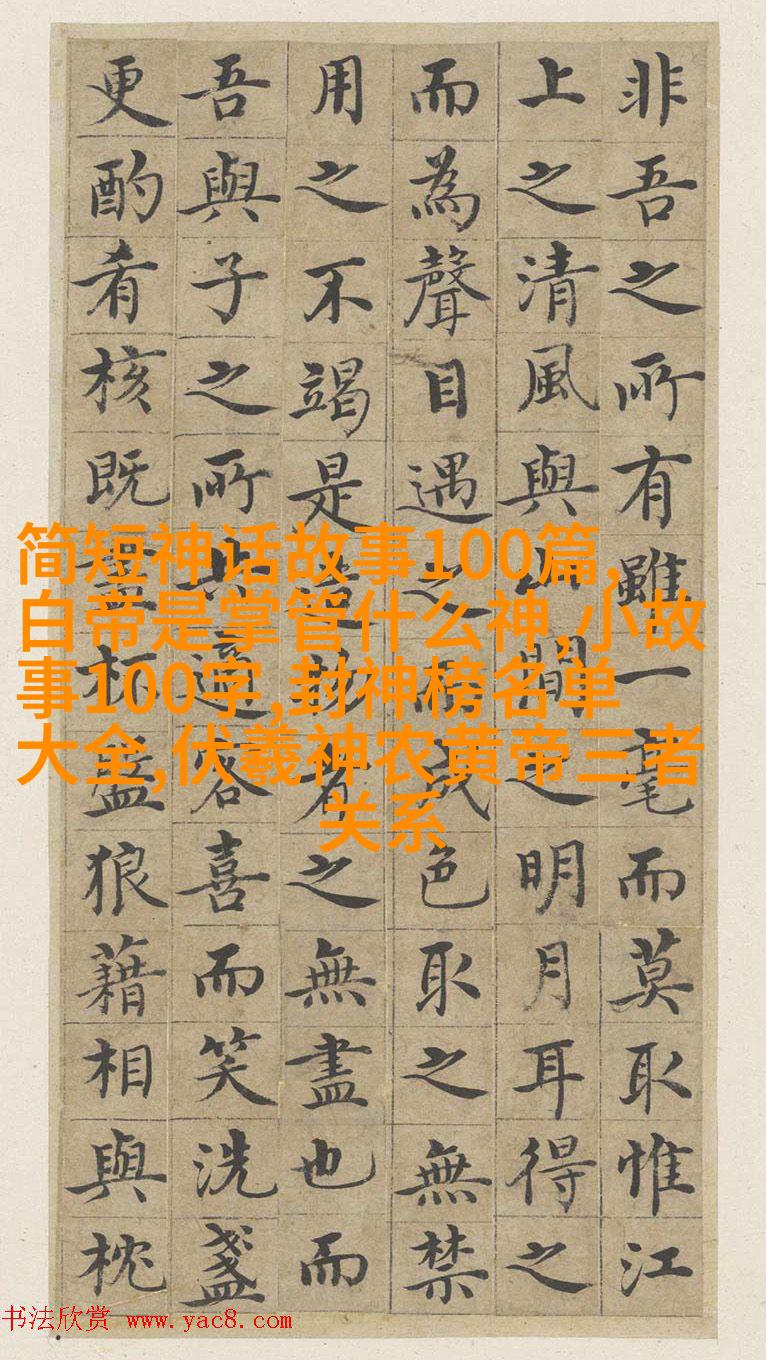 非吾之所有雖一毫而莫取惟江
上之清風與山間之明月耳得之
而為聲目遇之而成色取之無禁
用之不竭是造物者之無盡也而
吾與子之所共適客喜而笑洗盞
更酌肴核既盡杯盤狼藉相與枕
简短神话故事100篇,
白帝是掌管什么神,小故
事100字,封神榜名单
大全,伏羲神农黄帝三者
关系
书法欣赏 www.yac8.com